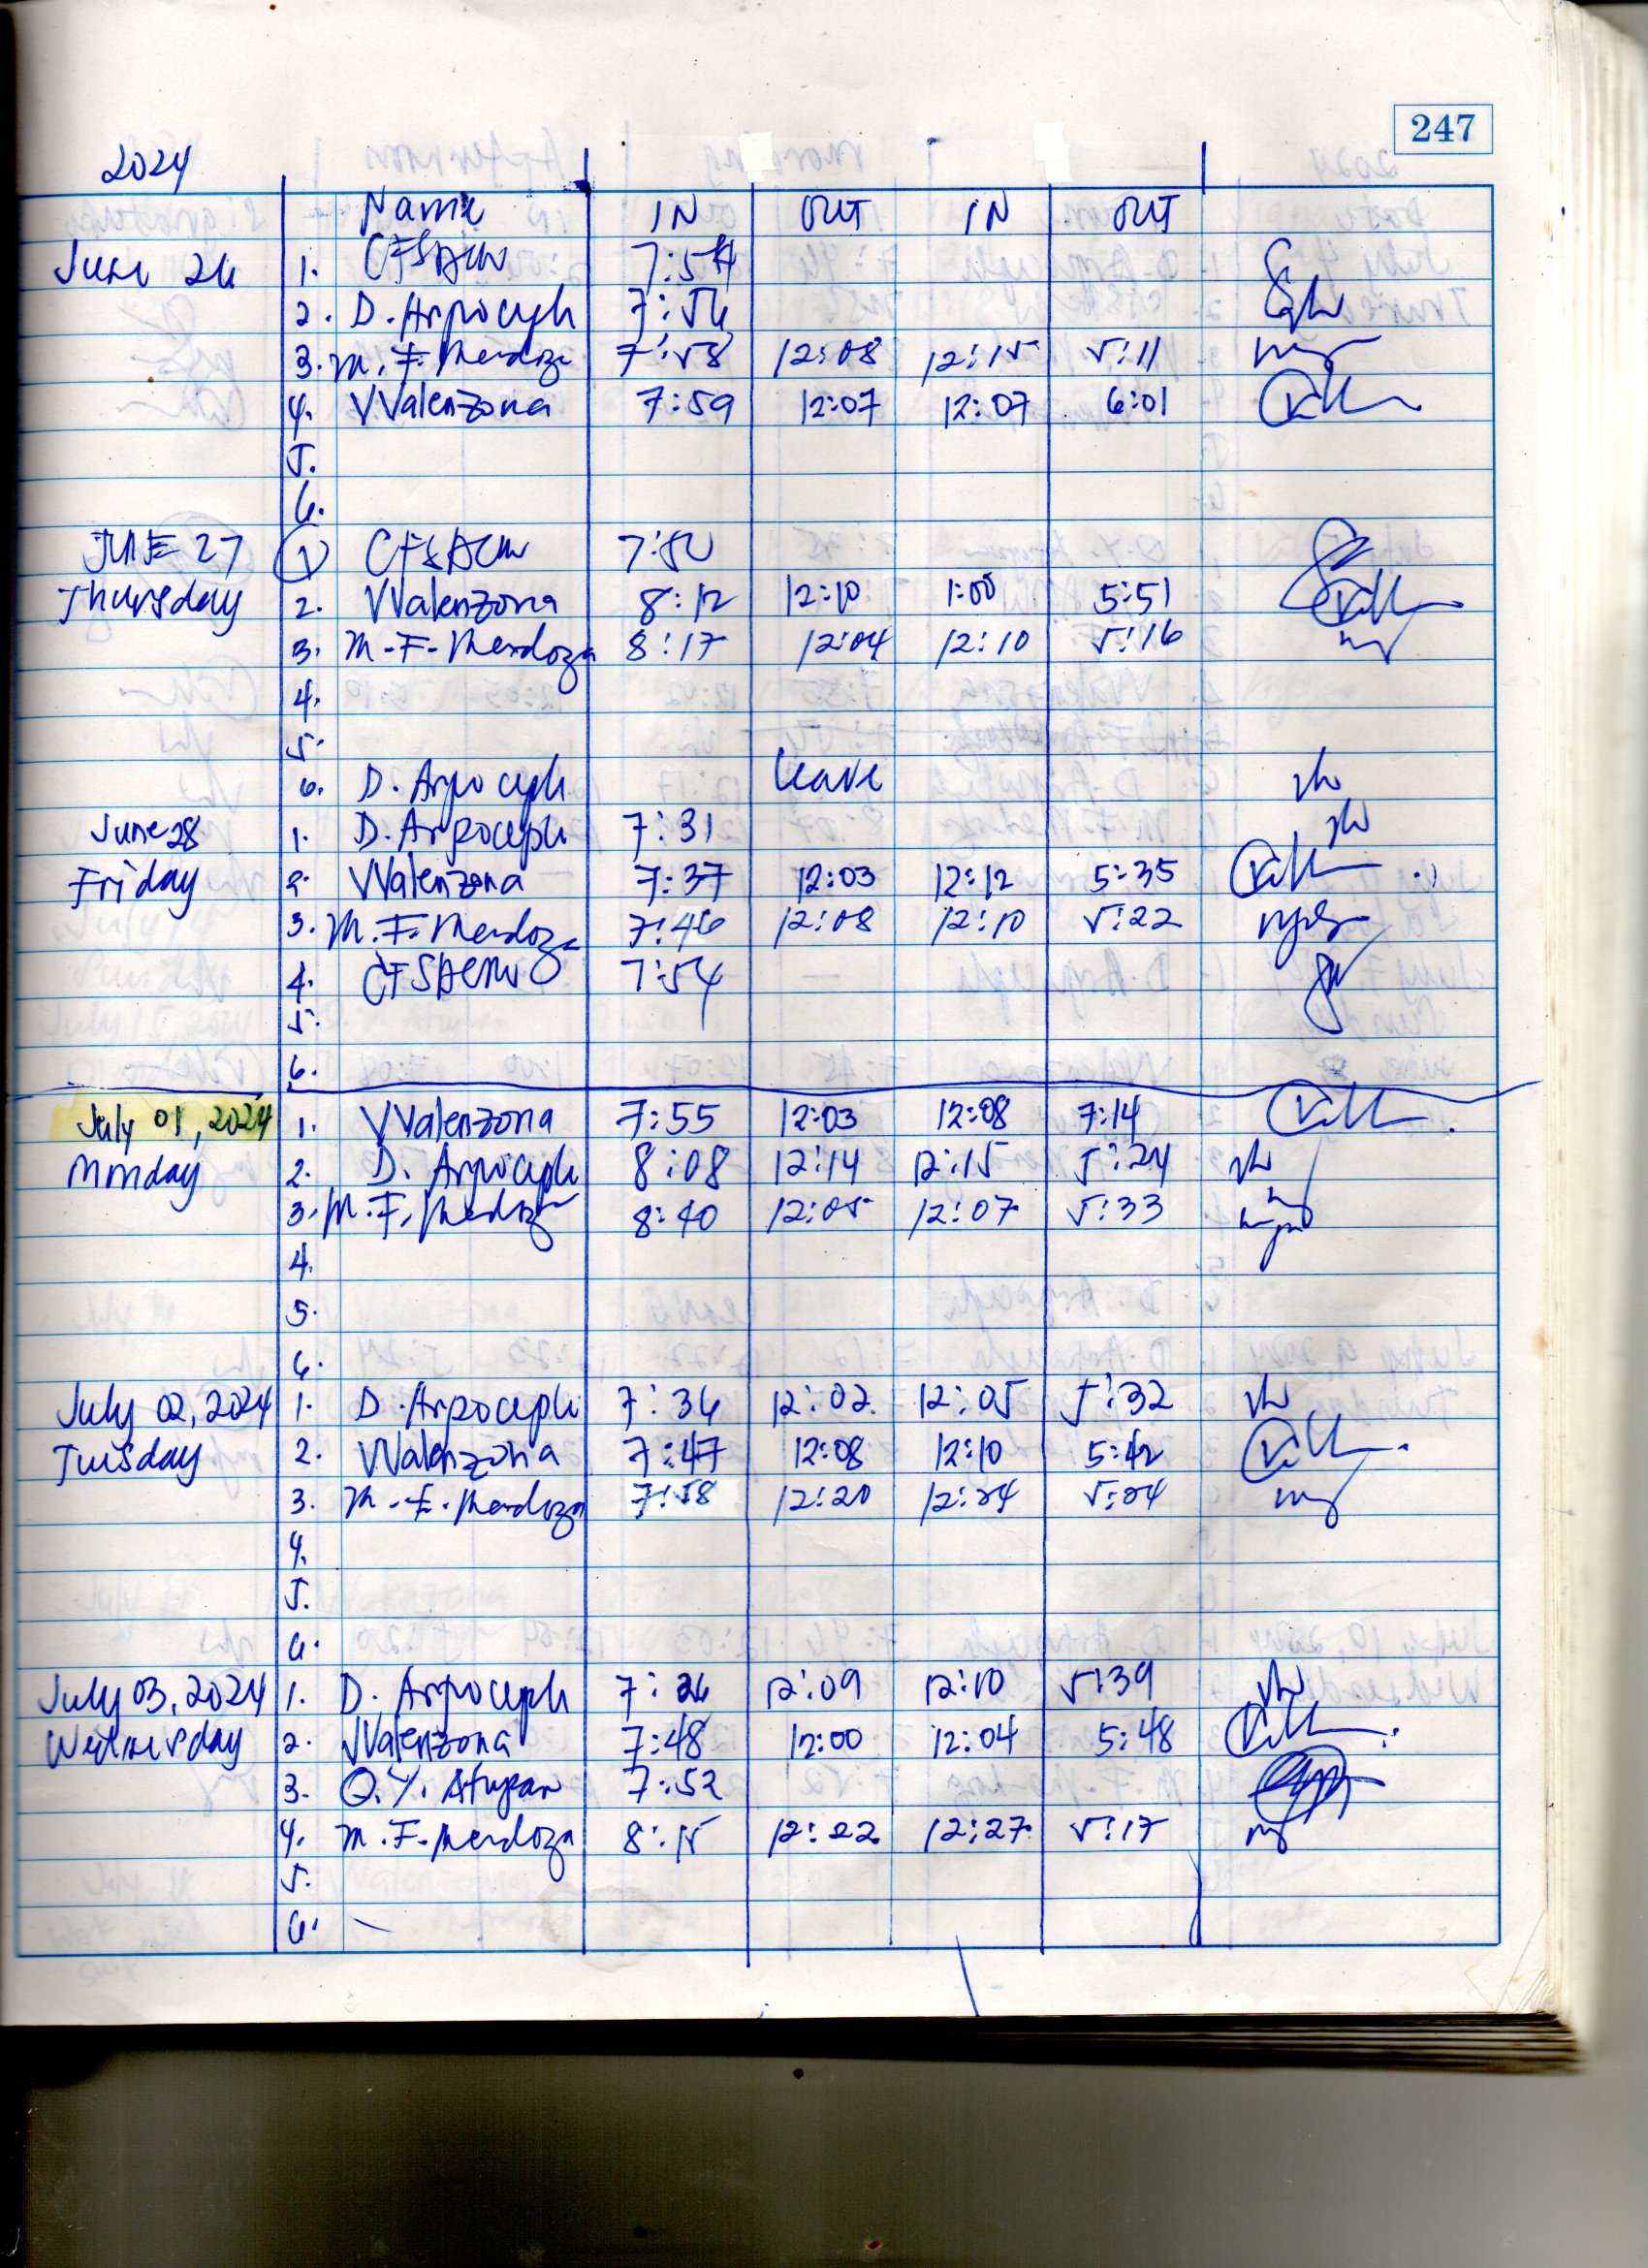 247
2024
Name IN OUT IN OUT
June 26 1. 7:54
2. D. Arpoceph 7:56
3. M. F. Mendoza 7:58 12:08 12:15 5:11
4. VValenzona 7:59 12:07 12:07 6:01
5.
6.
JUNE 27 1 7:50
Thursday 2. VValenzona 8:12 12:10 1:00 5:51
3. M-F-Mendoza 8:17 12:04 12:10 5:16
4.
5.
6. D. Arpoceph leave
June 28 1. D. Arpoceph 7:31
Friday 2. VValenzona 7:37 12:03 12:12 5:35
3. M.F. Mendoza 7:46 12:08 12:10 5:22
4. 7:54
5.
6.
July 01, 2024 1. VValenzona 7:55 12:03 12:08 7:14
Monday 2. D. Arpoceph 8:08 12:14 12:15 5:24
3. M.F. Mendoza 8:40 12:05 12:07 5:33
4.
5.
6.
July 02, 2024 1. D. Arpoceph 7:36 12:02 12:05 5:32
Tuesday 2. VValenzona 7:47 12:08 12:10 5:42
3. M. F. Mendoza 7:58 12:20 12:24 5:24
4.
5.
6.
July 03, 2024 1. D. Arpoceph 7:26 12:09 12:10 5:39
Wednesday 2. VValenzona 7:48 12:00 12:04 5:48
3. O.Y. 7:52
4. M. F. Mendoza 8:15 12:22 12:27 5:17
5.
6.